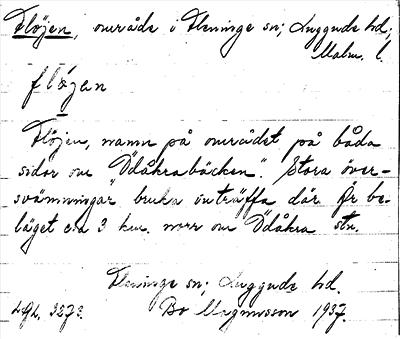 Flöjen, område i Fleninge sn; Luggude hd;
Malm. l.
fløjen
Flöjen, namn på området på båda
sidor om "Ödåkrabäcken". Stora över-
svämningar bruka inträffa där. Är be-
läget c:a 3 km. norr om Ödåkra stn.
Fleninge sn; Luggude hd.
Bo Magnusson 1937.